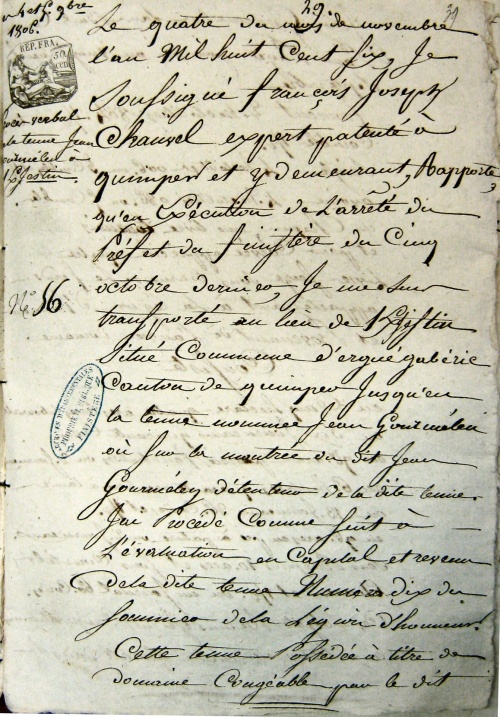 29
29
1806.
RÉP. FRA.
Le quatre du mois de novembre
l'an Mil huit Cent Six, Je
Soussigné françois Joseph
Chauvel expert patenté à
quimper et y demeurant, Rapporte,
qu'en Exécution de L'arrêté du
Préfet du finistère du Cinq
octobre dernier, Je me suis
transporté au lieu de
Situé Commune d'ergué gabéric
Canton de quimper Jusqu'en
la tenue nommée Jean Gourmélen
où sur la montrée du dit Jean
Gourmélen détenteur de la dite tenue.
J'ai Procédé Comme Suit à
L'évaluation en Capital et revenu
de la dite tenue Numéro dix du
Sommier de la Légion d'honneur.
Cette tenue Possédée à titre de
domaine Congéable par le dit
verbal
la tenue Jean
à
No. 56
FINISTERE